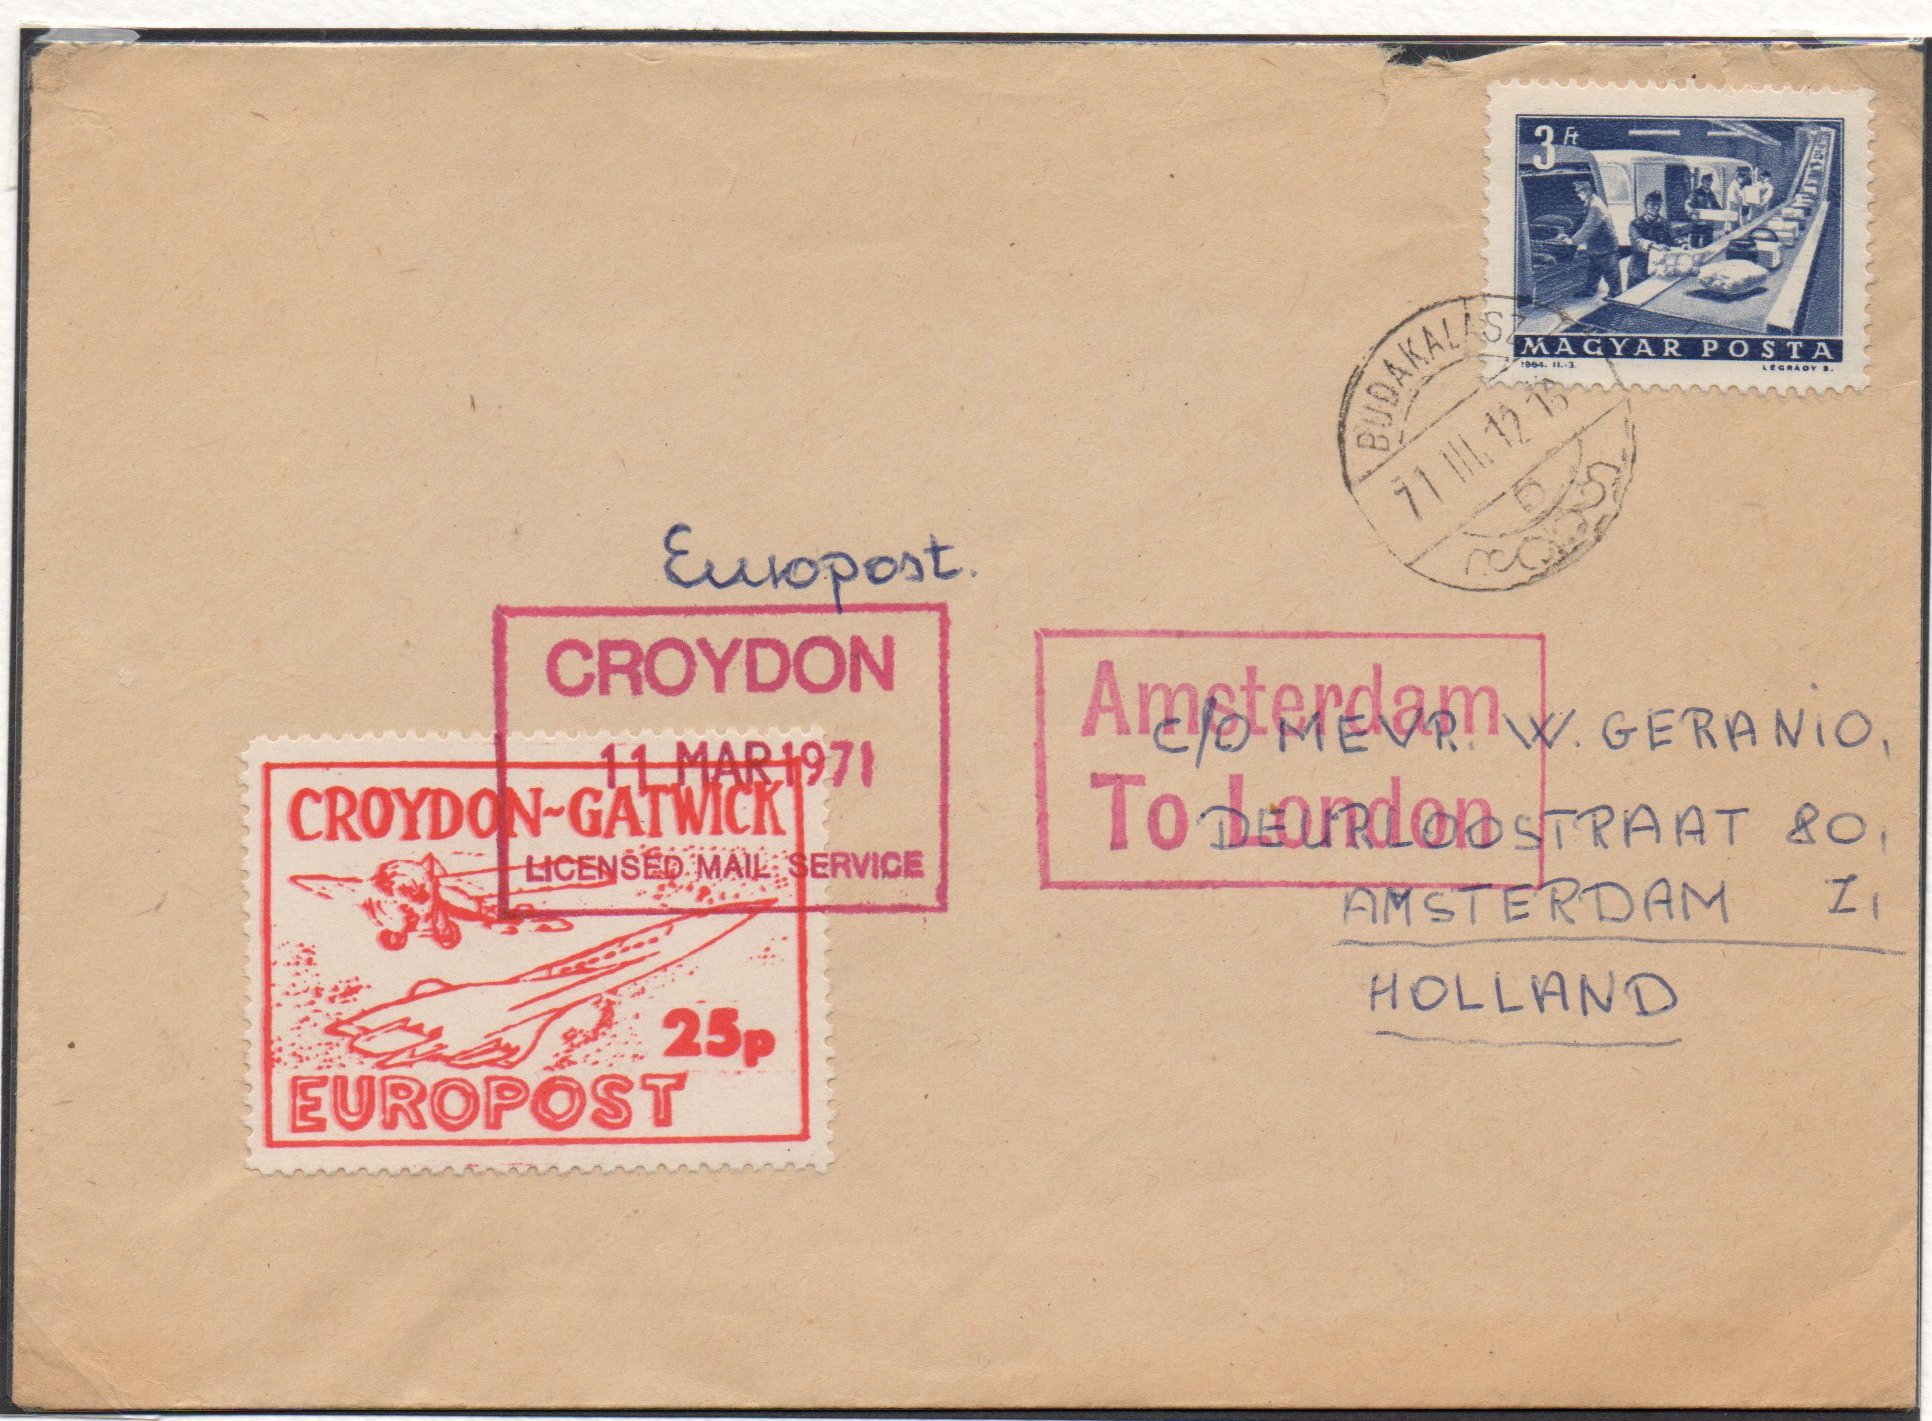 3 Ft
MAGYAR POSTA
1964. II. 3.
LÉGRÁDY S.
BUDAKALÁSZ
71 III. 12. 15
Europost.
CROYDON
11 MAR 1971
LICENSED MAIL SERVICE
Amsterdam
To London
C/O MEVR. W. GERANIO,
DEURLOOSTRAAT 80,
AMSTERDAM Z,
HOLLAND
CROYDON~GATWICK
25p
EUROPOST